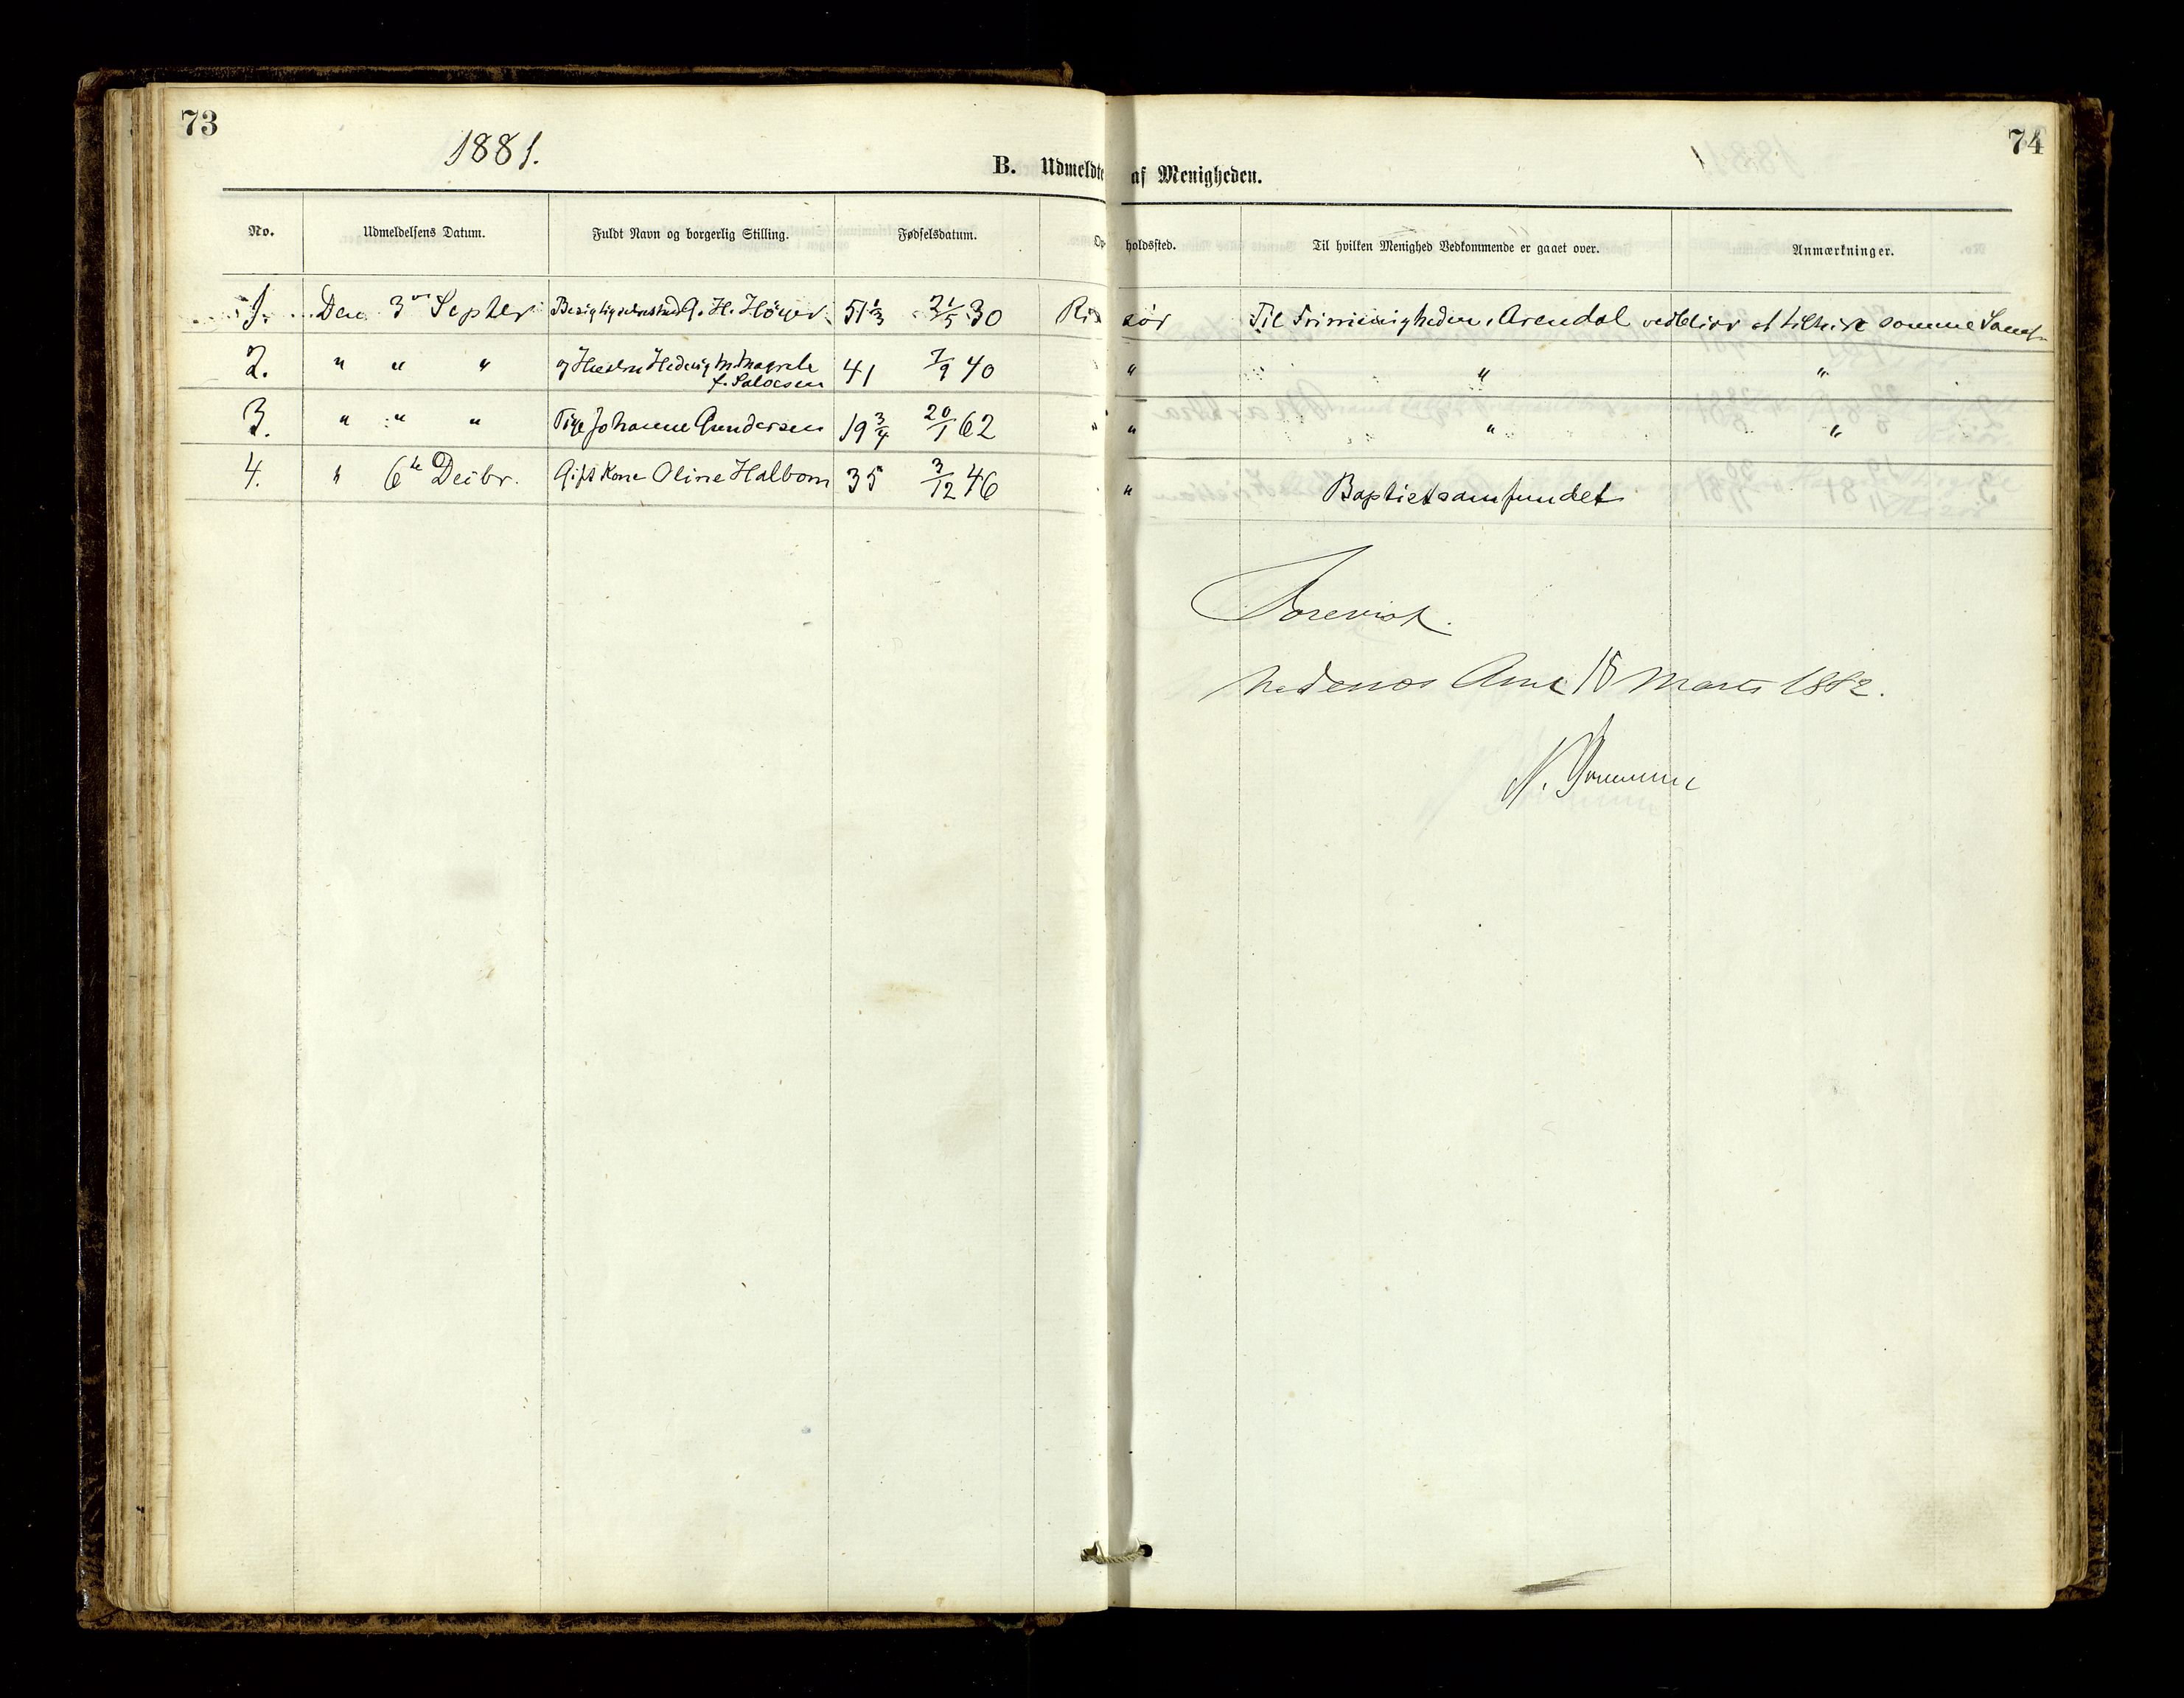 73
74
1881.
B. Udmeldte af Menigheden.
No. Udmeldelsens Datum. Fuldt Navn og borgerlig Stilling. Fødselsdatum. Op holdssted. Til hvilken Menighed Vedkommende er gaaet over. Anmærkninger.
1. Den 3 Septbr H. Höyer 51 1/3 30 Ri sör Til Frimenigheden i Arendal vedbliver at tilhøre samme Samf.
2. " " " og Hustru Hedevig M. Magrete 41 7/9 40 " " "
f.
3. " " " Pige Johanne Gundersen 19 3/4 20/1 62 " " " "
4. " 6te Decbr. Gift Kone Oline Halbom 35 3/12 46 " Baptistsamfundet
Forevist.
Nedenes Amt 18 Marts 1882.